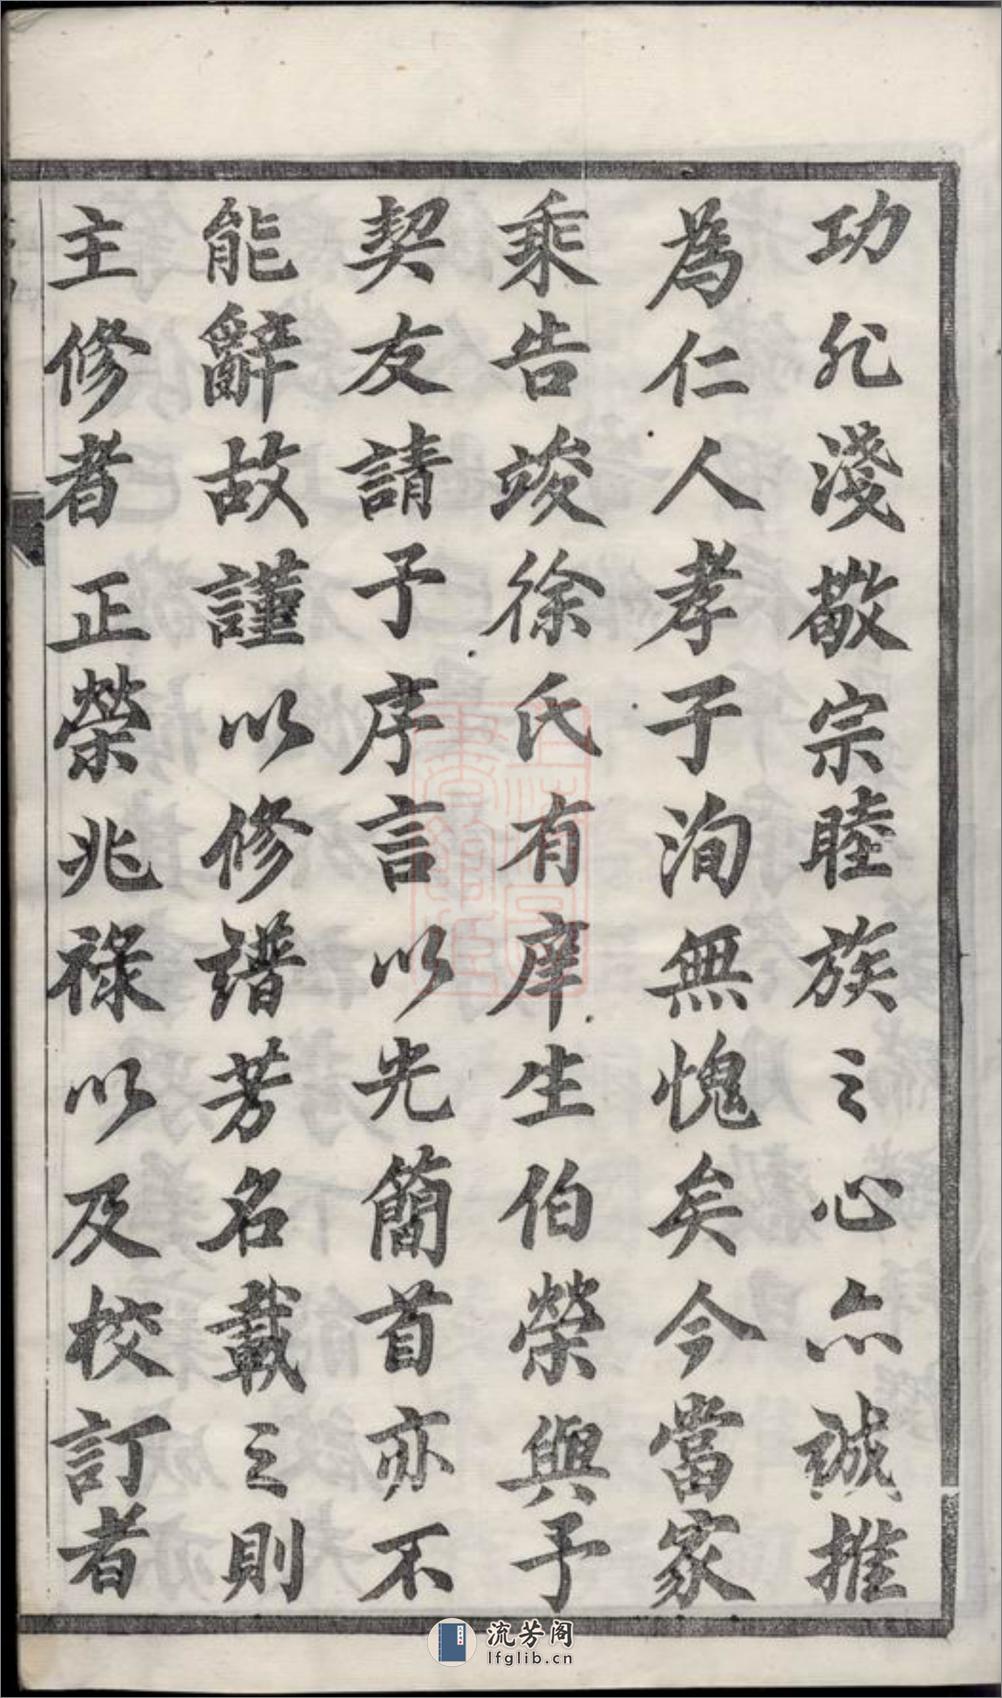 功允淺敬宗睦族之心亦誠推
為仁人孝子洵無愧矣今當家
乘告竣徐氏有庠生伯榮與予
契友請予序言以光簡首亦不
能辭故謹以修譜芳名載之則
主修者正榮兆祿以及校訂者
流芳阁
lfglib.cn